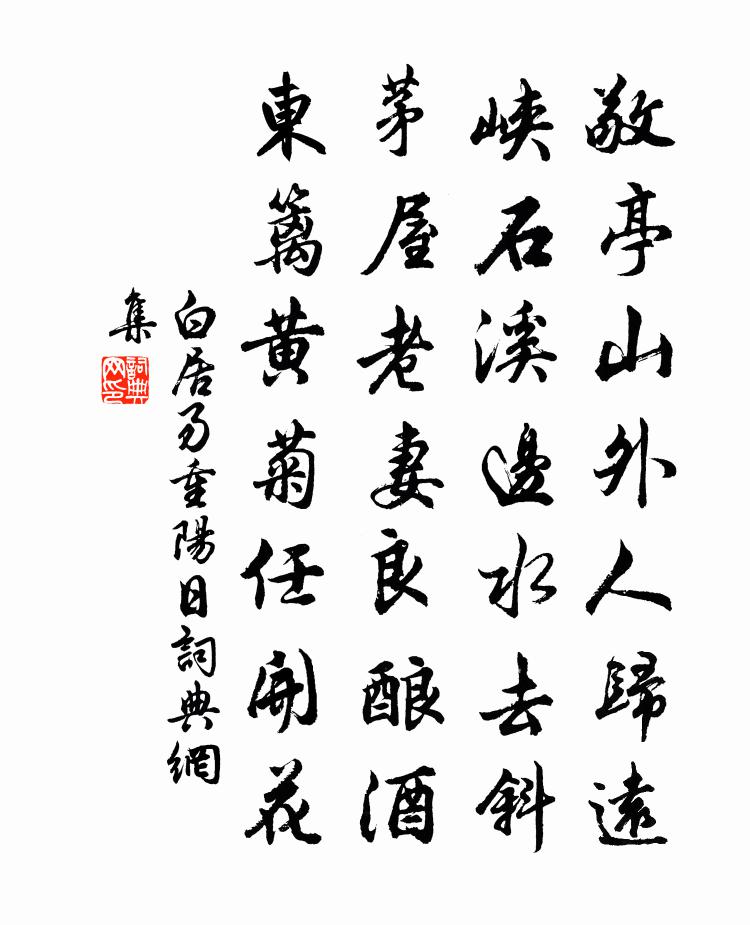 敬亭山外人歸遠
峽石溪邊水去斜
茅屋老妻良酿酒
東籬黄菊任開花
白居易重陽日詞典網
集
詞典
网印